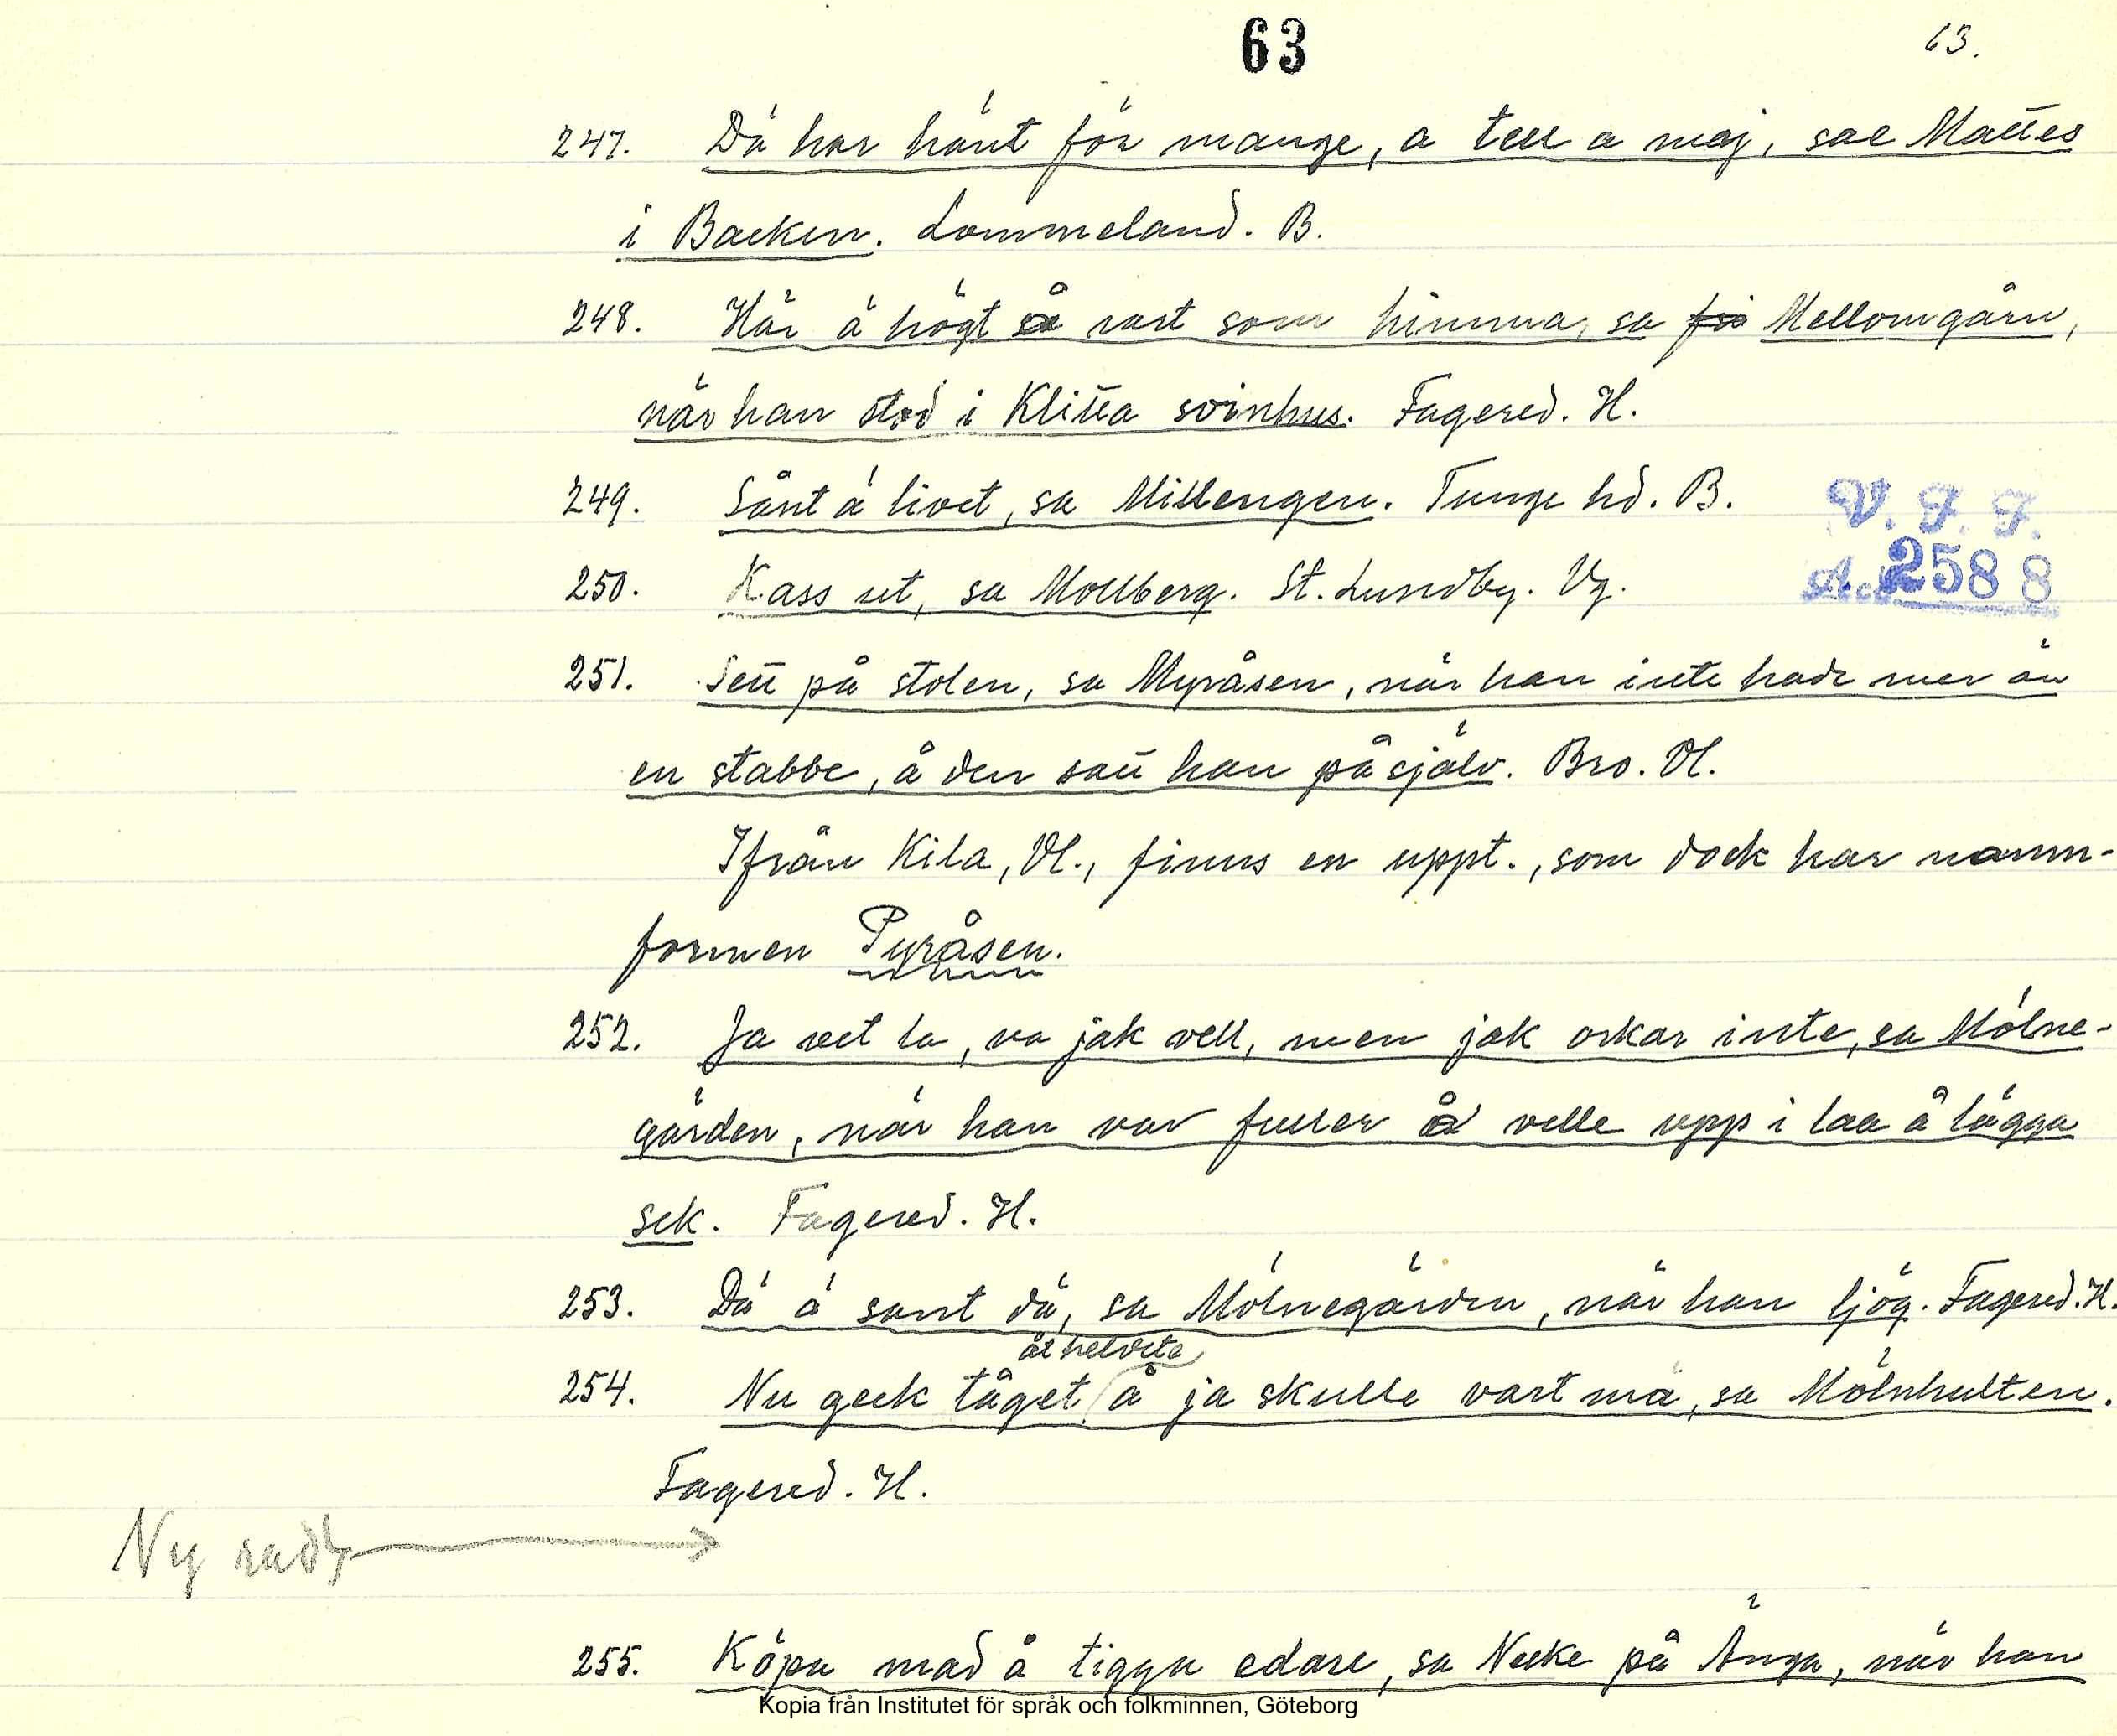 63
63.
247. Dä har hänt för mange, a tell a maj, sae Mattes
i Backen. Lommeland. B.
248. Här ä högt å vast som himma, sa Mellomgårn,
när han stod i Klitta svinhus. Fagered. H.
249. Sånt ä livet, sa Millengen. Tunge hd. B.
250. Kass ut, sa Mollberg. St. Lundby. Vg.
V. F. F.
Acc. 2588
251. Sett på stolen, sa Myråsen, när han inte hade mer än
en stabbe, å den satt han på själv. Bro. Vl.
Ifrån Kila, Vl., finns en uppt., som dock har namn-
formen Pyråsen.
252. Ja vet la, va jak vell, men jak orkar inte, sa Mölne-
gärden, när han var fuller å velle upp i laa å lägga
sek. Fagered. H.
253. Dä ä sant dä, sa Mölnegärden, när han ljög. Fagered. H.
åt helvete
254. Nu geck tåget, å ja skulle vart mä, sa Mölnhulten.
Fagered. H.
Ny rad
255. Köpa mad å tigga edare, sa Necke på Änga, när han
Kopia från Institutet för språk och folkminnen, Göteborg